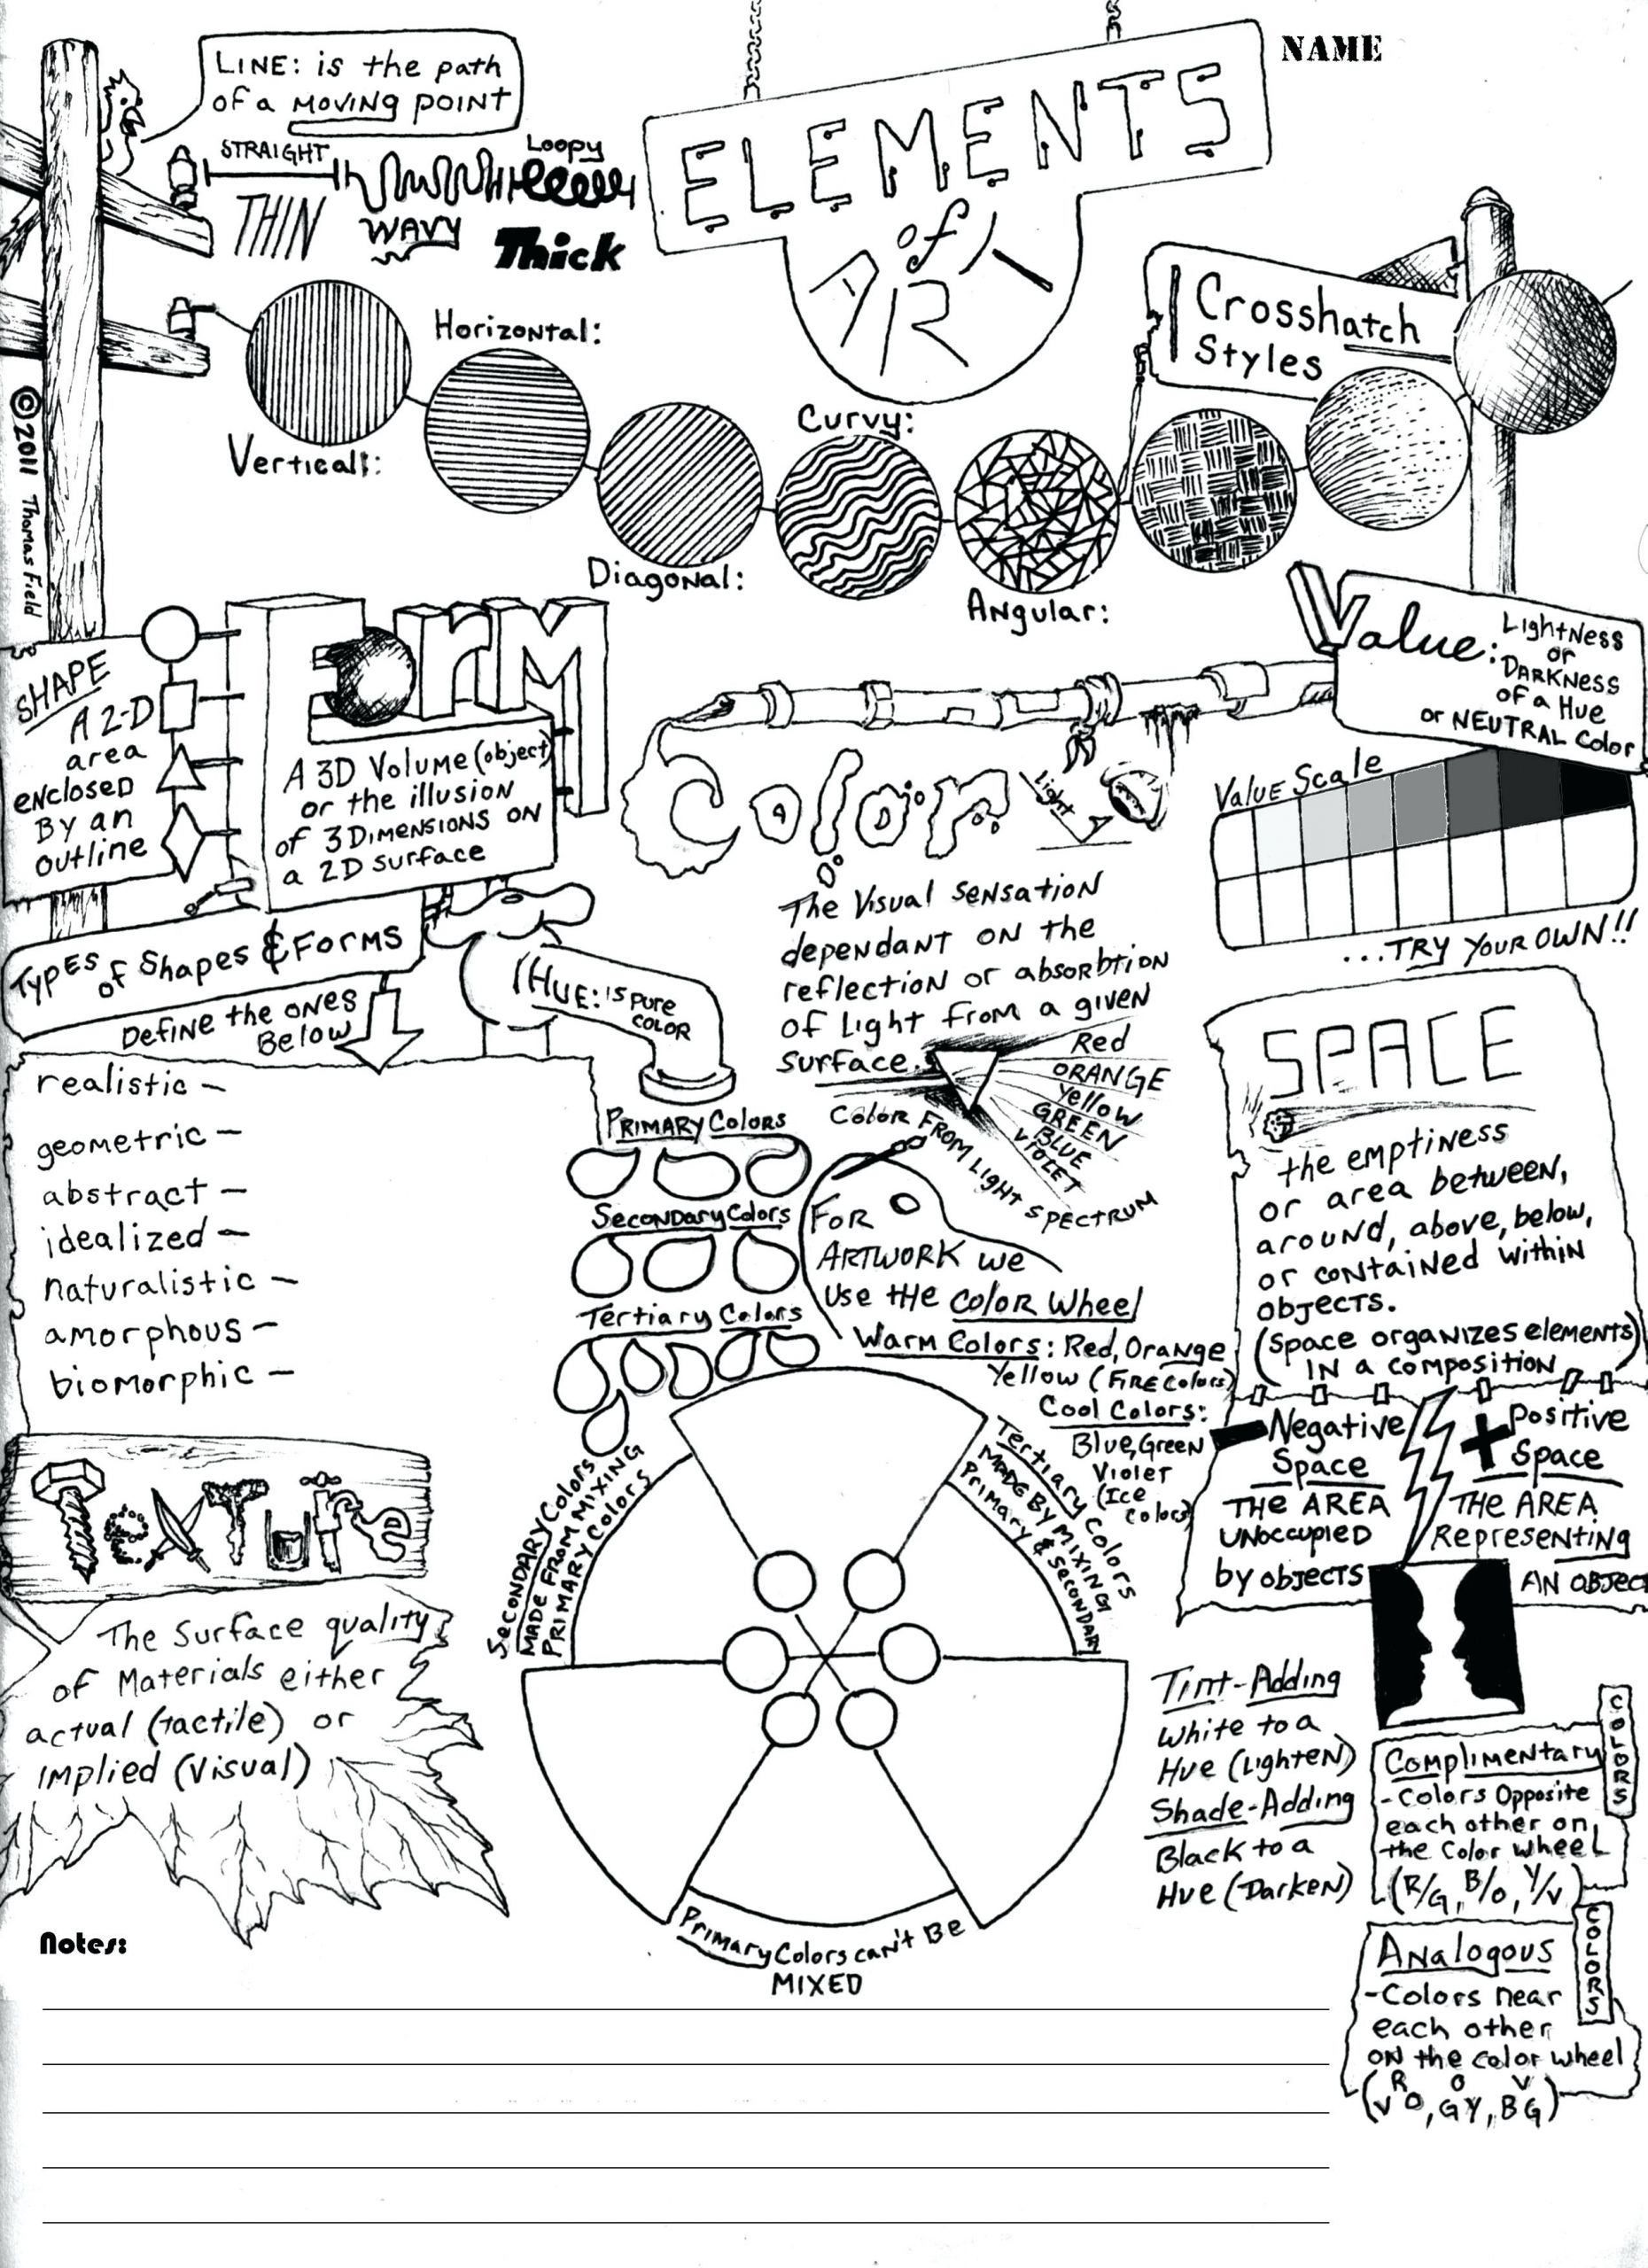 NAME
LINE: is the path
of a MOVING POINT
STRAIGHT
Loopy
THIN
WAVY
Thick
ELEMENTS
of
ART
Crosshatch
Styles
Horizontal:
Verticall:
Curvy:
Diagonal:
Angular:
©2011 Thomas Field
SHAPE
A 2-D
area
enclosed
By an
outline
Form
A 3D Volume (object)
or the illusion
of 3 Dimensions on
a 2D surface
Value: Lightness
or
DARKNESS
of a Hue
or NEUTRAL Color
Value Scale
...TRY YOUR OWN!!
Color:
Light
The Visual sensation
dependant on the
reflection or absorbtion
of Light from a given
surface.
Red
ORANGE
Yellow
GREEN
BLUE
VIOLET
Color FROM Light SPECTRUM
Types of Shapes & Forms
Define the ones
Below
realistic -
geometric -
abstract -
idealized -
naturalistic -
amorphous -
biomorphic -
HUE: is pure
COLOR
PRIMARY Colors
Secondary Colors
Tertiary Colors
FOR
ARTWORK we
use tHe Color Wheel
Warm Colors: Red, Orange
Yellow (FIRE Colors)
Cool Colors:
Blue, Green
Violet
(Ice
Colors)
SPACE
the emptiness
or area between,
around, above, below,
or contained within
objects.
(Space organizes elements)
IN a composition
Negative
Space
THE AREA
UNoccupied
by objects
+ Positive
Space
THE AREA
Representing
AN OBJECT
Texture
The Surface quality
of Materials either
actual (tactile) or
implied (visual)
Secondary Colors
MADE FROM MIXING
PRIMARY Colors
Tertiary Colors
MADE BY MIXING
Primary & Secondary
Primary Colors can't Be
MIXED
Tint-Adding
White to a
Hue (Lighten)
Shade-Adding
Black to a
Hue (Darken)
Complimentary
COLORS
- Colors Opposite
each other on
the Color wheel
(R/G, B/O, Y/V)
Analogous
COLORS
-Colors near
each other
on the color wheel
R O V
(V O, G Y, B G)
Notes: